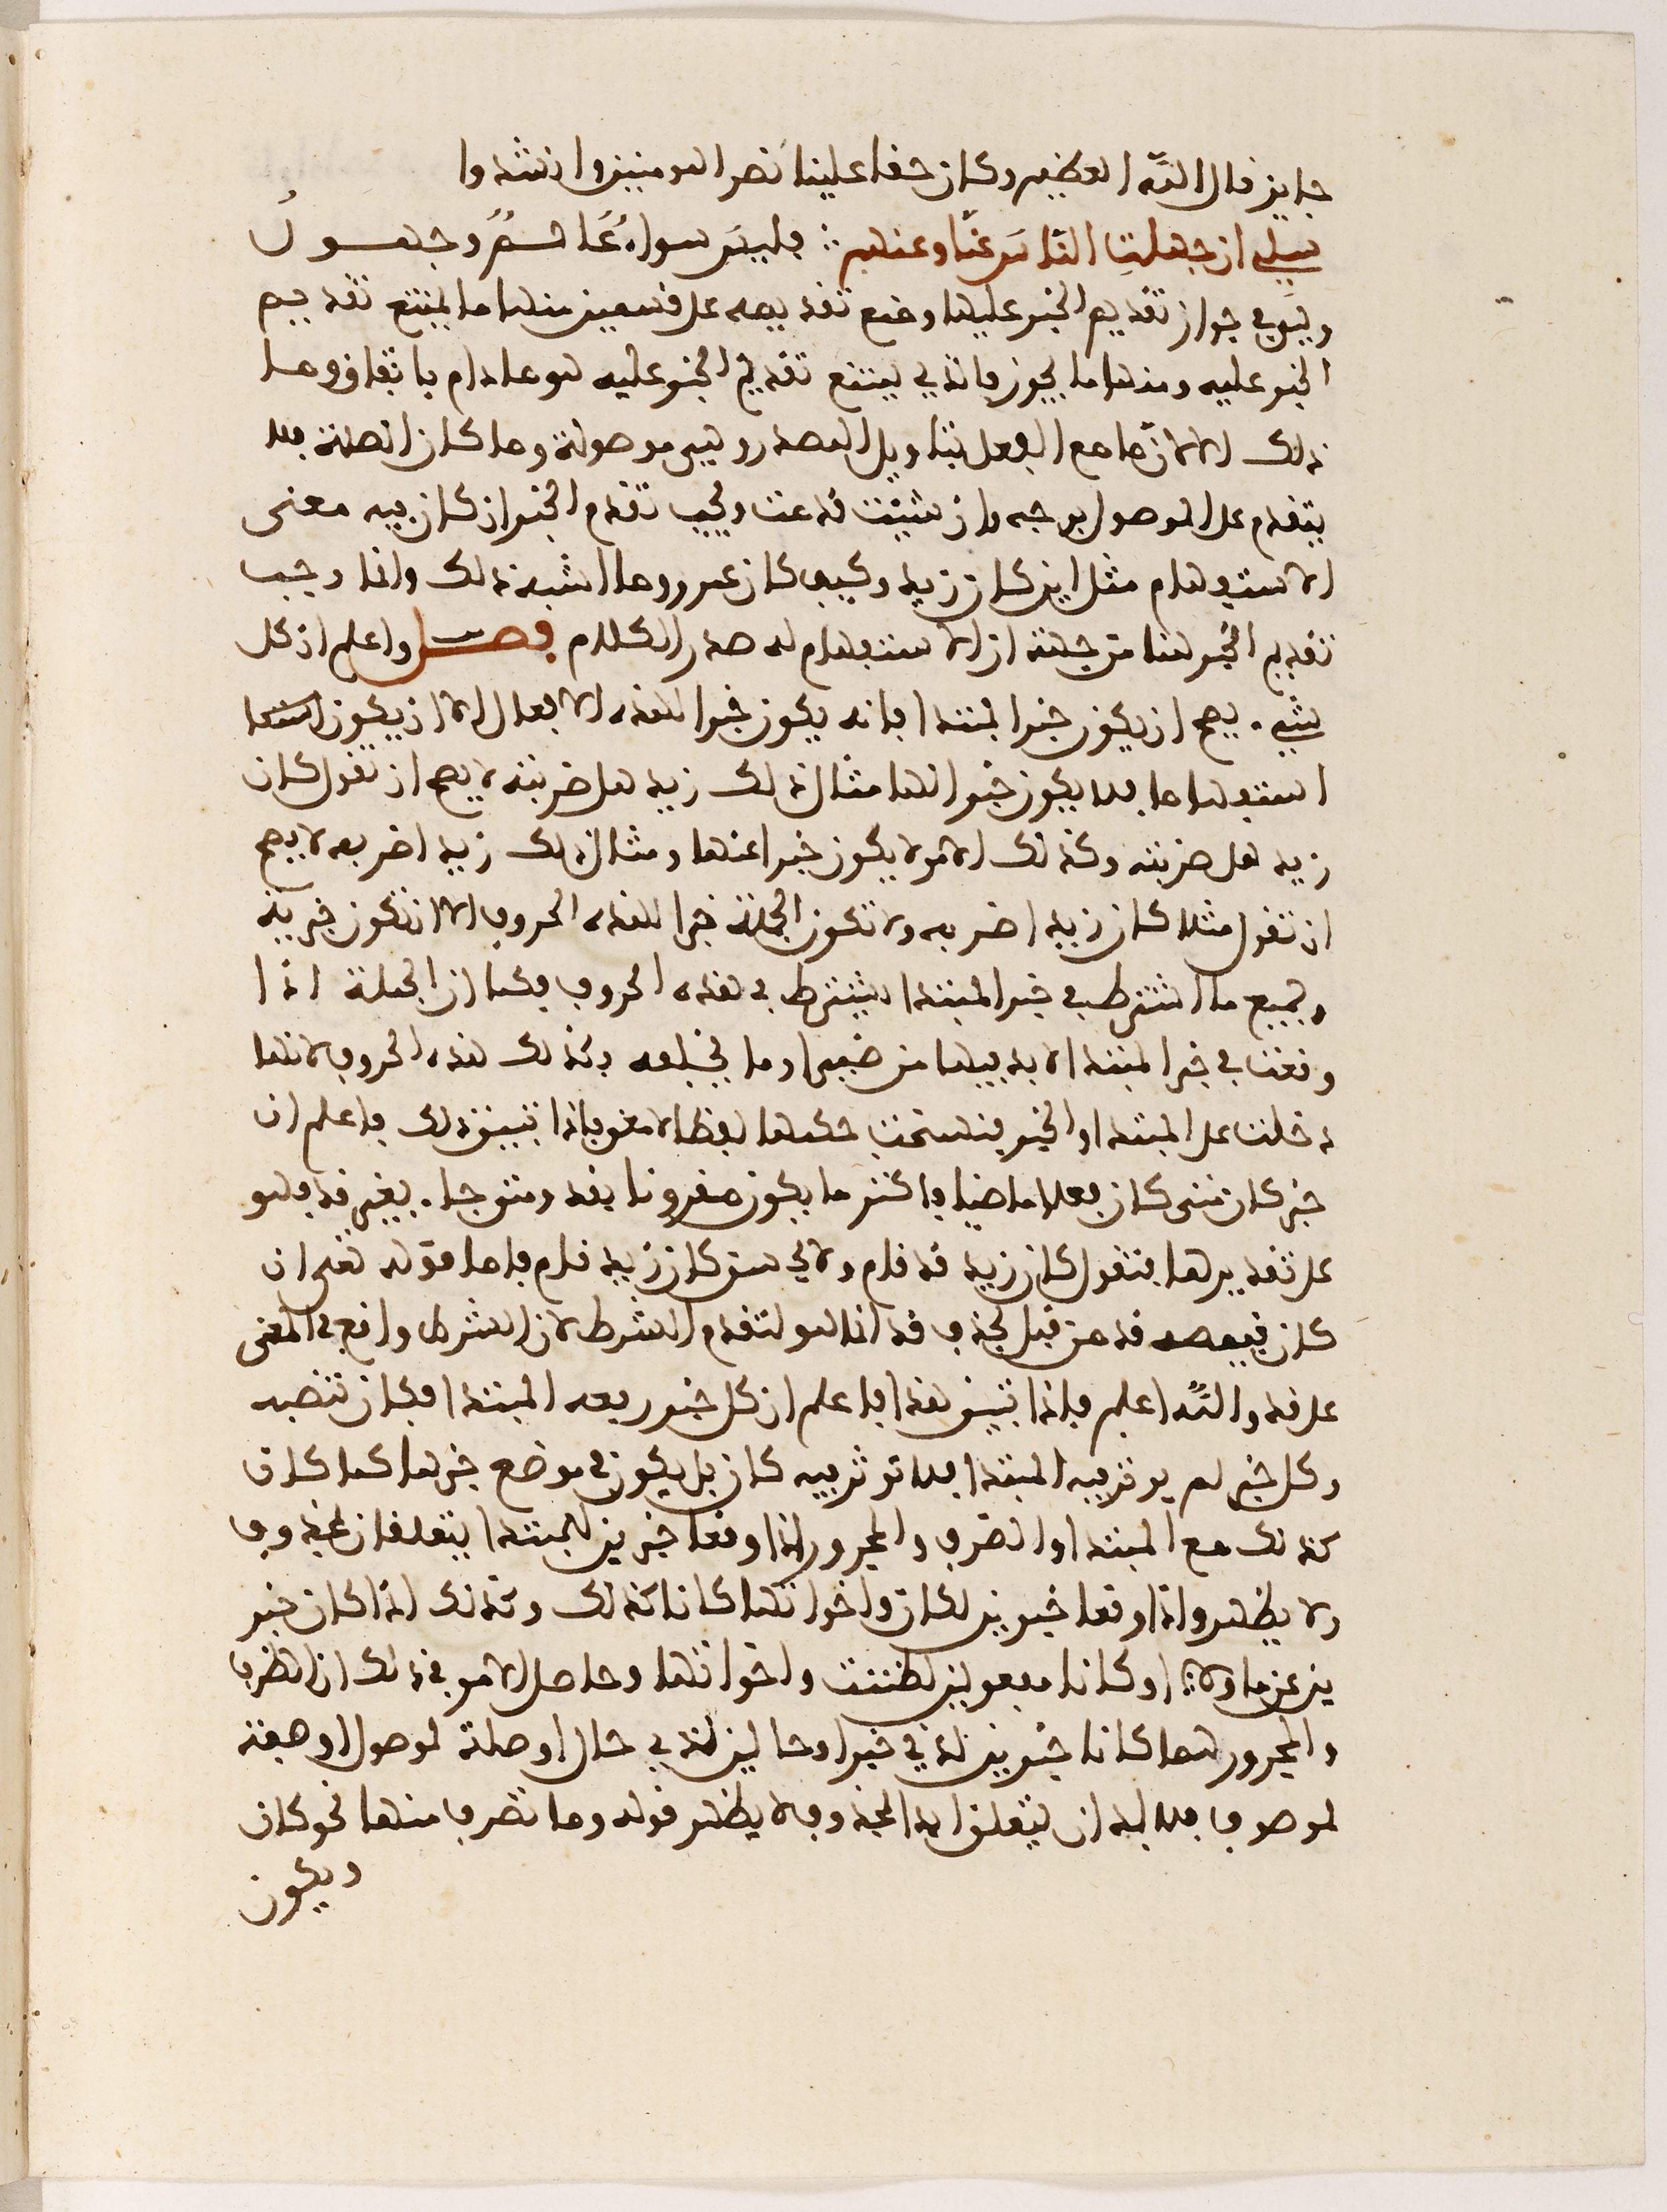 جايز قال الله العظيم وكان حقا علينا نصر المومنين وانشدوا
سلي ان جهلت الناس عنا وعنهم ∴ فليس سواء عالم وجهول
وهي في جواز تقديم الخبر عليها ومنع تقديمه على قسمين منها ما يمتنع تقديم
الخبر عليه ومنها ما يجوز فالذي يمتنع تقديم الخبر عليه هو ما دام باتفاق وما
ذلك الا لان ما مع الفعل بتاويل المصدر وهي موصولة وما كان الصلة فلا
يتقدم على الموصول بوجه وان شيت قد عت ويجب تقدم الخبر ان كان فيه معنى
الاستفهام مثل اين كان زيد وكيف كان عمرو وما اشبه ذلك وانما وجب
تقديم الخبر هنا من جهة ان الاستفهام له صدر الكلام فصل واعلم ان كل
شيء يصح ان يكون خبر المبتدا فانه يكون خبرا لهذه الافعال الا ان يكون
استفهاما فلا يكون خبرا لها مثال ذلك زيد هل ضربته لا يصح ان تقول كان
زيد هل ضربته وكذلك الامر لا يكون خبرا عنها ومثال ذلك زيد اضربه لا يصح
ان تقول مثلا كان زيد اضربه ولا تكون الجملة خبرا لهذه الحروف الا ان تكون خبرية
وجميع ما اشترط في خبر المبتدا يشترط في هذه الحروف فكما ان الجملة اذا
وقعت في خبر المبتدا لابد فيها من ضمير او ما يخلفه فكذلك هذه الحروف لانها
دخلت على المبتدا والخبر فنسخت حكمها لفظا لا معنى فاذا تبين ذلك فاعلم ان
خبر كان متى كان فعلا ماضيا فاكثر ما يكون مقرونا بقد ومتى جاء بغير قد فهو
على تقديرها فتقول كان زيد قد قام ولا يحسن كان زيد قام فاما قوله تعلى ان
كان قميصه قد من قبل فحذف قد انما هو لتقدم الشرط لان الشرط واقع في المعنى
على قد والله اعلم فاذا تبين هذا فاعلم ان كل خبر يرفعه المبتدا فكان تنصبه
وكل خبر لم يوثر فيه المبتدا فلا توثر فيه كان بل يكون في موضع خبرها كما كان
كذلك مع المبتدا والظرف والمجرور اذا وقعا خبرين للمبتدا يتعلقان بمحذوف
ولا يظهر واذا وقعا خبرين لكان واخواتها كانا كذلك وكذلك اذا كان خبر
ين عن ما ولا او كانا مفعولين لظننت واخواتها وحاصل الامر في ذلك ان الظرف
والمجرور مهما كانا خبرين لذي خبر او حالين لذي حال او صلة لموصول او صفة
لموصوف فلا بد ان يتعلقا بالمحذوف لا يظهر قوله وما تصرف منها نحو كان
ويكون